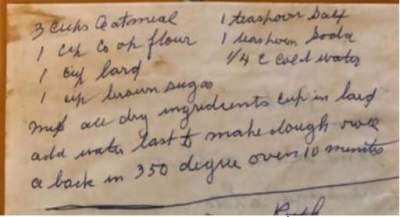 3 cups Oatmeal
1 cup Co op flour
1 cup lard
1 cup brown sugar
1 teaspoon Salt
1 teaspoon Soda
1/4 c cold water
mix all dry ingridients cup in lard
add water last to make dough
a back in 350 degree oven 10 minutes